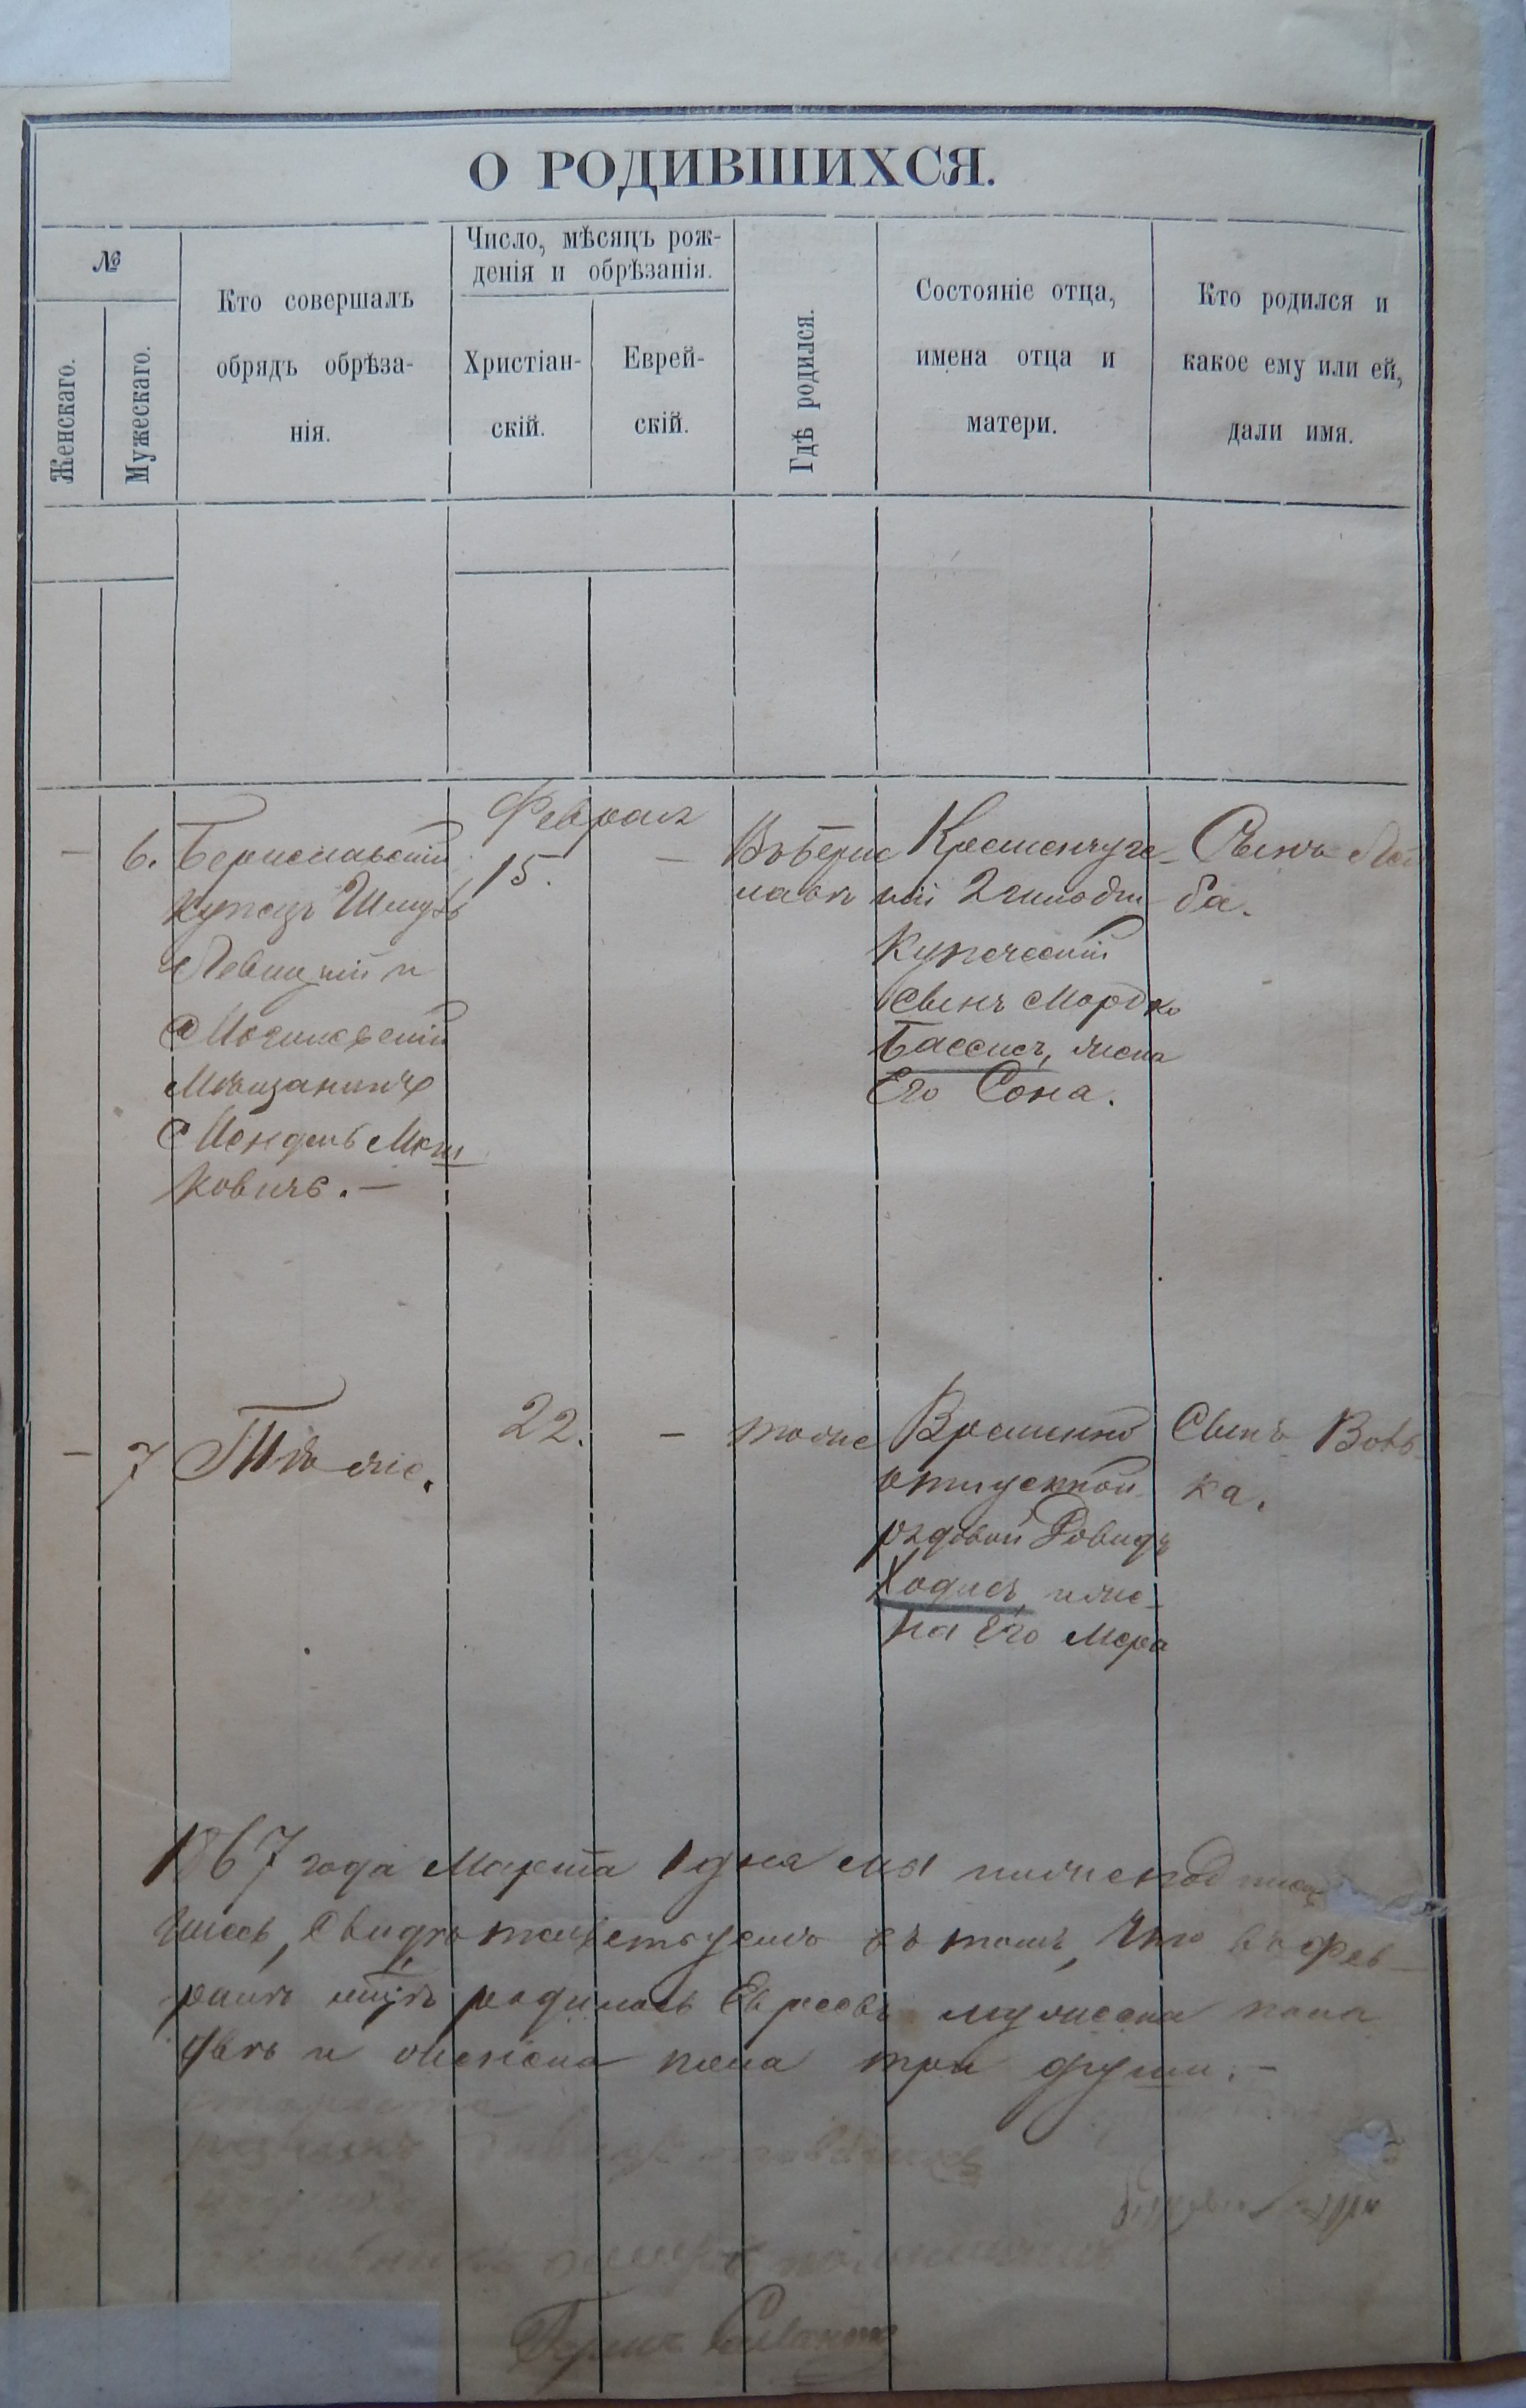 О РОДИВШИХСЯ.
№
Женскаго.
Мужескаго.
Кто совершалъ
обрядъ обрѣза-
нія.
Число, мѣсяцъ рож-
денія и обрѣзанія.
Христіан-
скій.
Еврей-
скій.
Гдѣ родился.
Состояніе отца,
имена отца и
матери.
Кто родился и
какое ему или ей,
дали имя.
—
6.
Бериславскій
купецъ Шмуль
Левицкій и
Могилевскій
Мѣщанинъ
Мендель
ковичъ. —
Февраля
15.
—
Въ Берис
лавѣ
Кременчуг-
кій 2 гильдіи
Купеческій
сынъ Мордко
Бассисъ, жена
Его Сона.
Сынъ Лей
ба.
—
7
Тѣ же.
22.
—
тоже
Временно
отпускной
рядовой Довидъ
Ходисъ, и же-
на Его Мера
Сынъ Вовь-
ка.
1867 года Марта 1 дня мы нижеподписав
шіесь, Свидѣтельствуемъ въ томъ, что въ фев-
ралѣ м-цѣ родилось Евреевъ мужеска пола
двѣ и женска пола три души. —